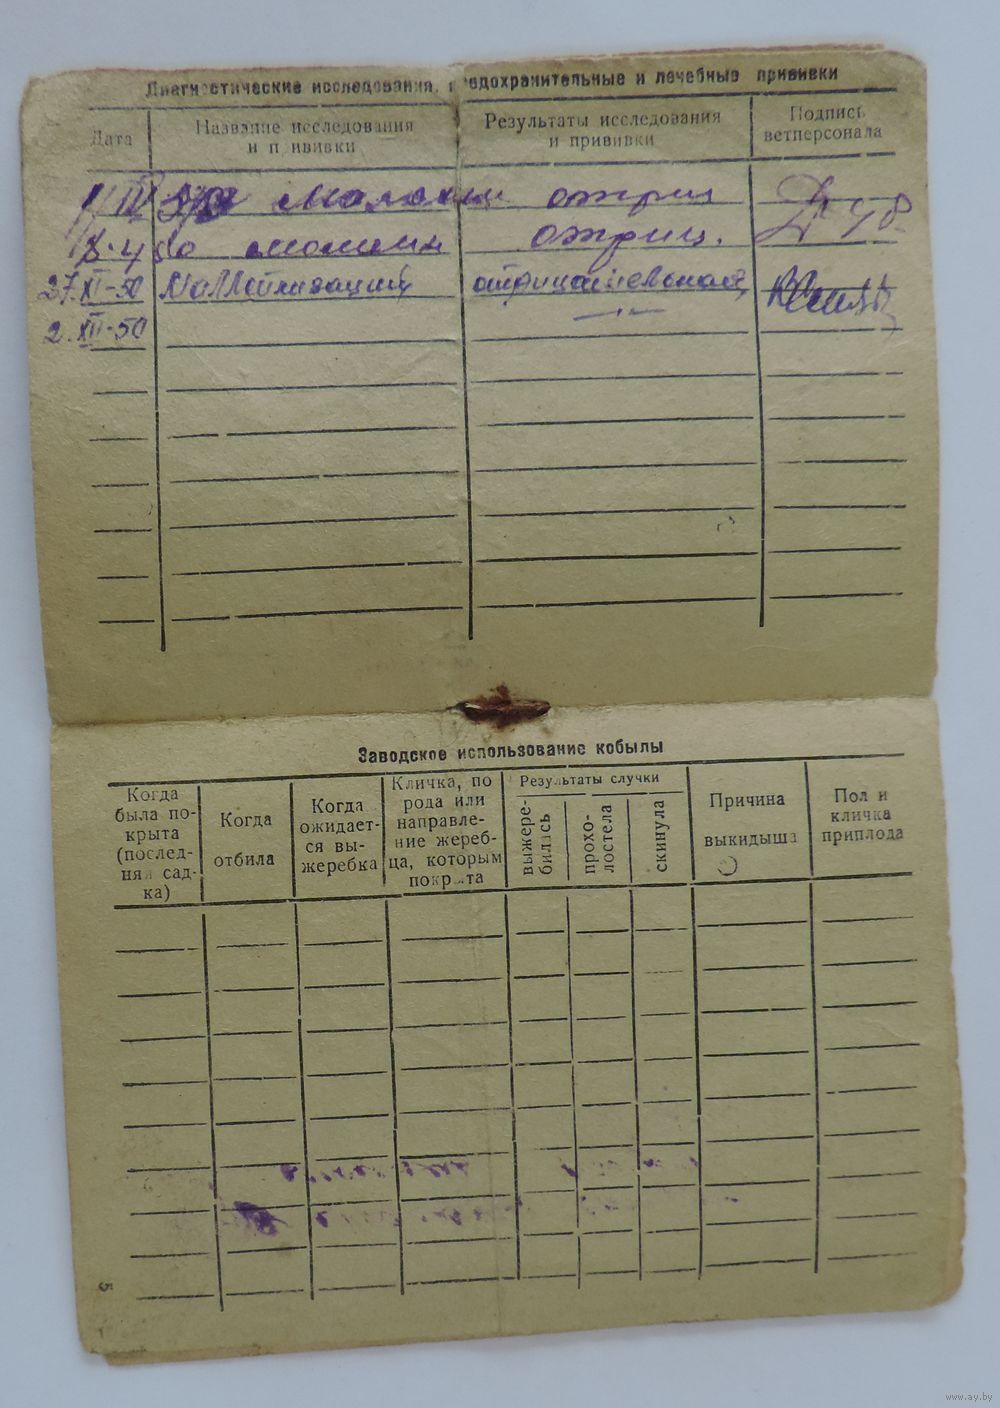 Диагностические исследования, предохранительные и лечебные прививки
Дата
Название исследования
и прививки
Результаты исследования
и прививки
Подпись
ветперсонала
отриц
отриц.
27.XI-50 Маллеинизация отрицательная
2.XII-50 —"—
Заводское использование кобылы
Когда
была по-
крыта
(послед-
няя сад-
ка)
Когда
отбила
Когда
ожидает-
ся вы-
жеребка
Кличка, по
рода или
направле-
ние жереб-
ца, которым
покрыта
Результаты случки
выжере-
билась
прохо-
лостела
скинула
Причина
выкидыша
Пол и
кличка
приплода
5
www.ay.by